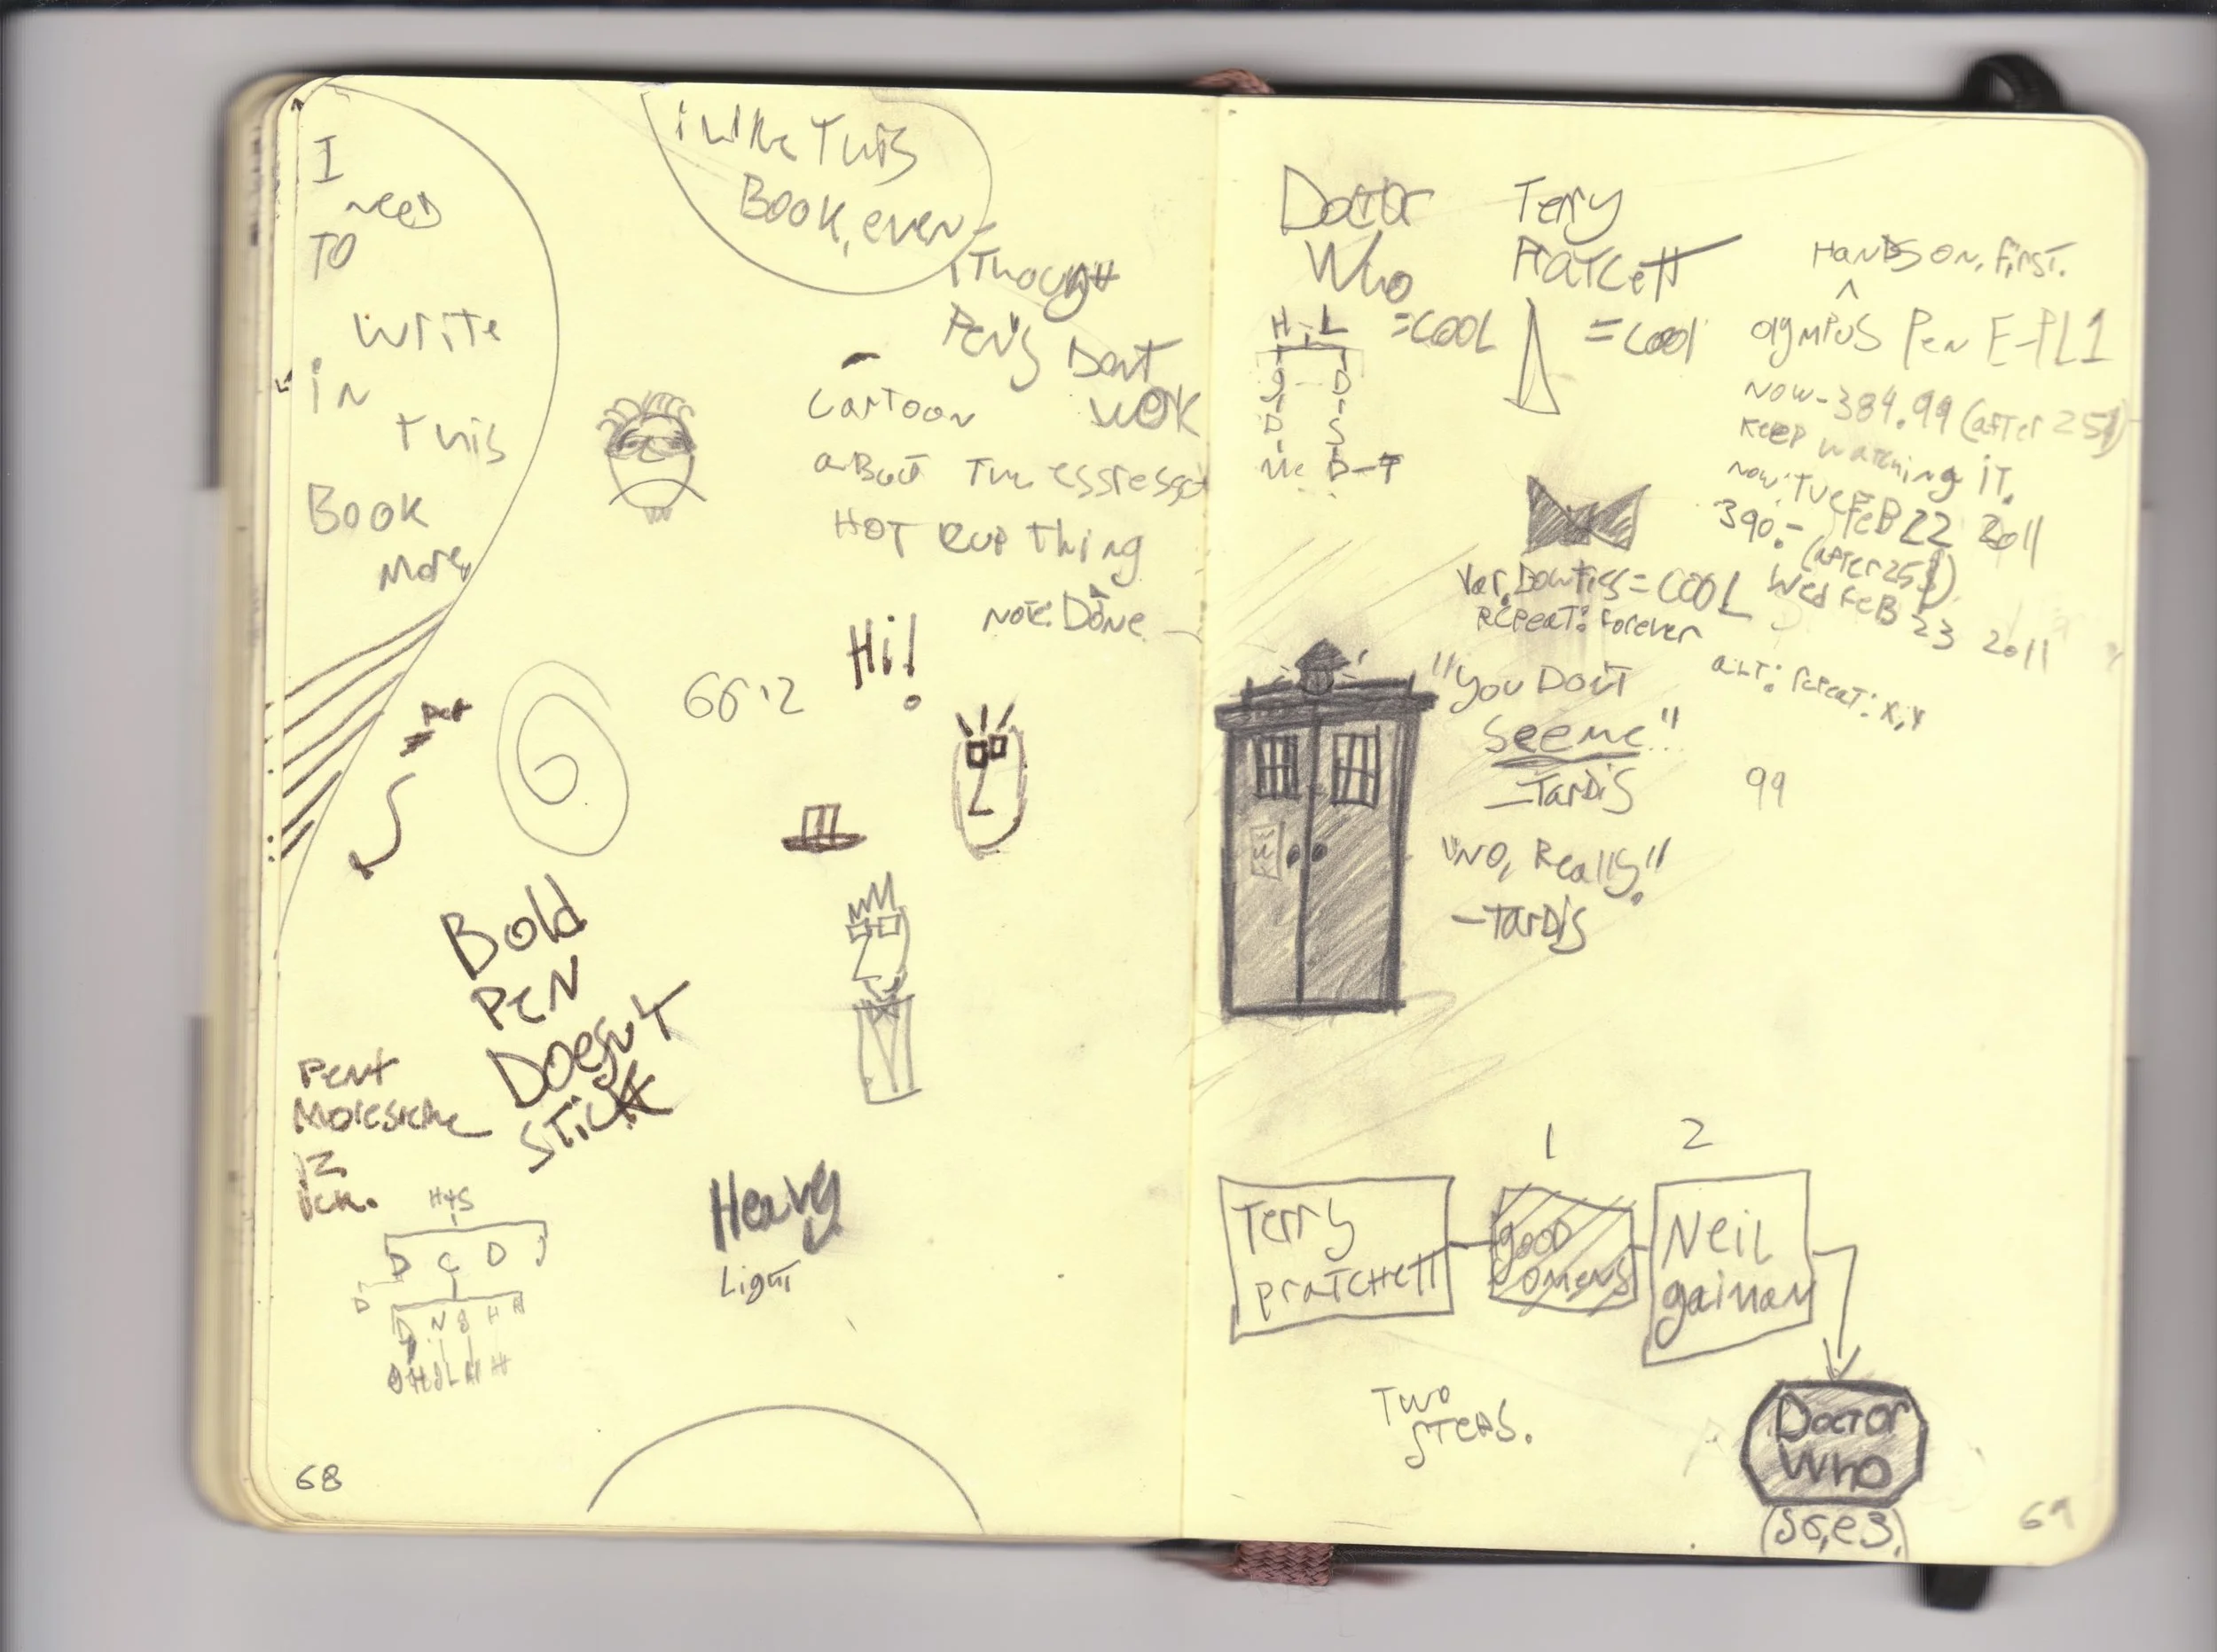 I
need
TO
write
in
this
BOOK
more,
i like This
BOOK, even
Though
Pen's Dont
work
cartoon
about The
HOT cup thing
note: Done
Hi!
66.2
Bold
Pen
Doesn't
STick
Pent
Moleskine
Heavy
Light
H+S
D C D J
D
D N B H
68
Doctor
Who
=COOL
Terry
Pratcett
= cool
H-L
Hands on, first.
^
Olympus Pen E-PL1
now-384.99 (after 25$)
Keep watching it.
now: Tue FeB 22 2011
390.- (after 25$)
Wed FeB 23 2011
Var. Bowties = COOL
Repeat: Forever
alt: repeat: x,y
"You Don't
See me"
-Tardis
99
"No, Really!"
-Tardis
1 2
Terry
Pratchett
good
omens
Neil
gaiman
Two
Steps.
Doctor
Who
(S6, e3)
69